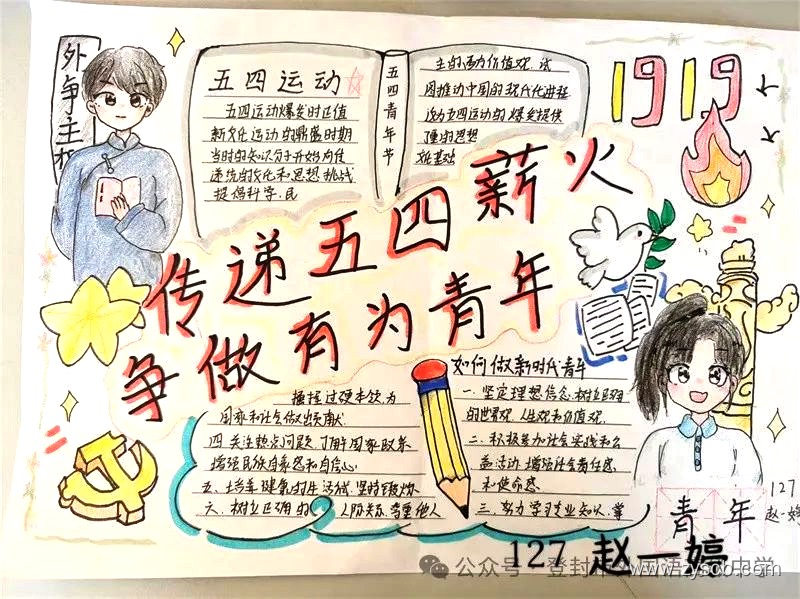 外争主权
五四运动
五四运动爆发时正值
新文化运动的鼎盛时期
当时的知识分子开始向传
统的文化和思想挑战
提倡科学、民
五四青年节
主的西方价值观,试
图推动中国的现代化进程
这为五四运动的爆发提供
了重要的思想
基础
1919
传递五四薪火
争做有为青年
如何做新时代青年
一、坚定理想信念,树立正确
的世界观、人生观和价值观。
二、积极参加社会实践和公
益活动,增强社会责任感
和使命感
三、努力学习专业知识,掌
握过硬本领,为
国家和社会做出贡献
四、关注热点问题,了解国家政策
增强民族自豪感和自信心
五、培养健康的生活
六、树立正确的人际关系,尊重他人
青年
127
赵一婷
127 赵一婷
公众号
登封
www.zyscb.com
中学